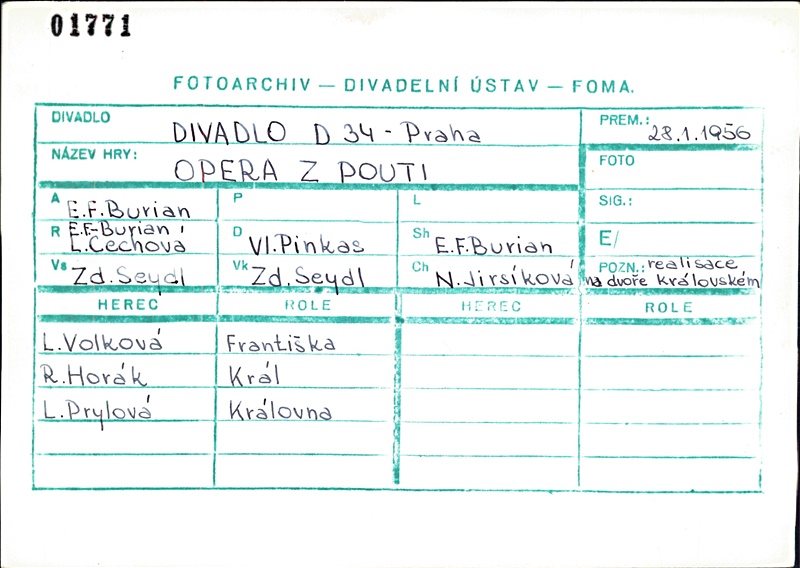 01771
FOTOARCHIV — DIVADELNÍ ÚSTAV — FOMA.
DIVADLO DIVADLO D 34 - Praha PREM.: 28.1.1956
NÁZEV HRY: OPERA Z POUTI FOTO
A E.F.Burian P L SIG.:
R E.F.Burian, L.Čechová D Vl.Pinkas Sh E.F.Burian E/
Vs Zd.Seydl Vk Zd.Seydl Ch N.Jirsíková POZN.: realisace
na dvoře královském
HEREC ROLE HEREC ROLE
L.Volková Františka
R.Horák Král
L.Prylová Královna